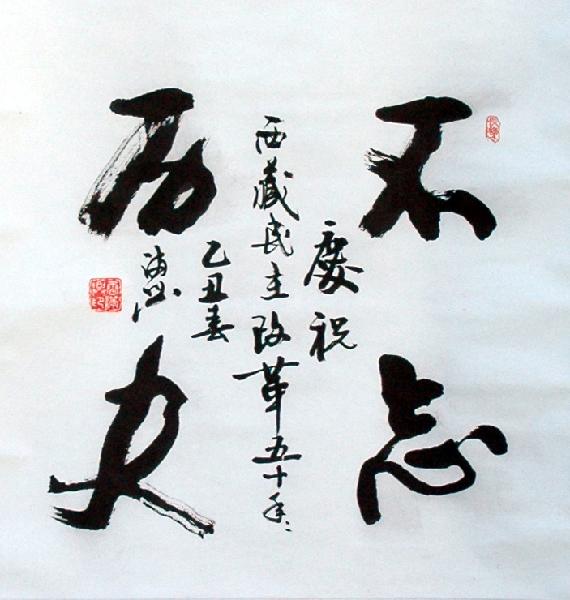 不忘
历史
慶祝
西藏民主改革五十年
乙丑春